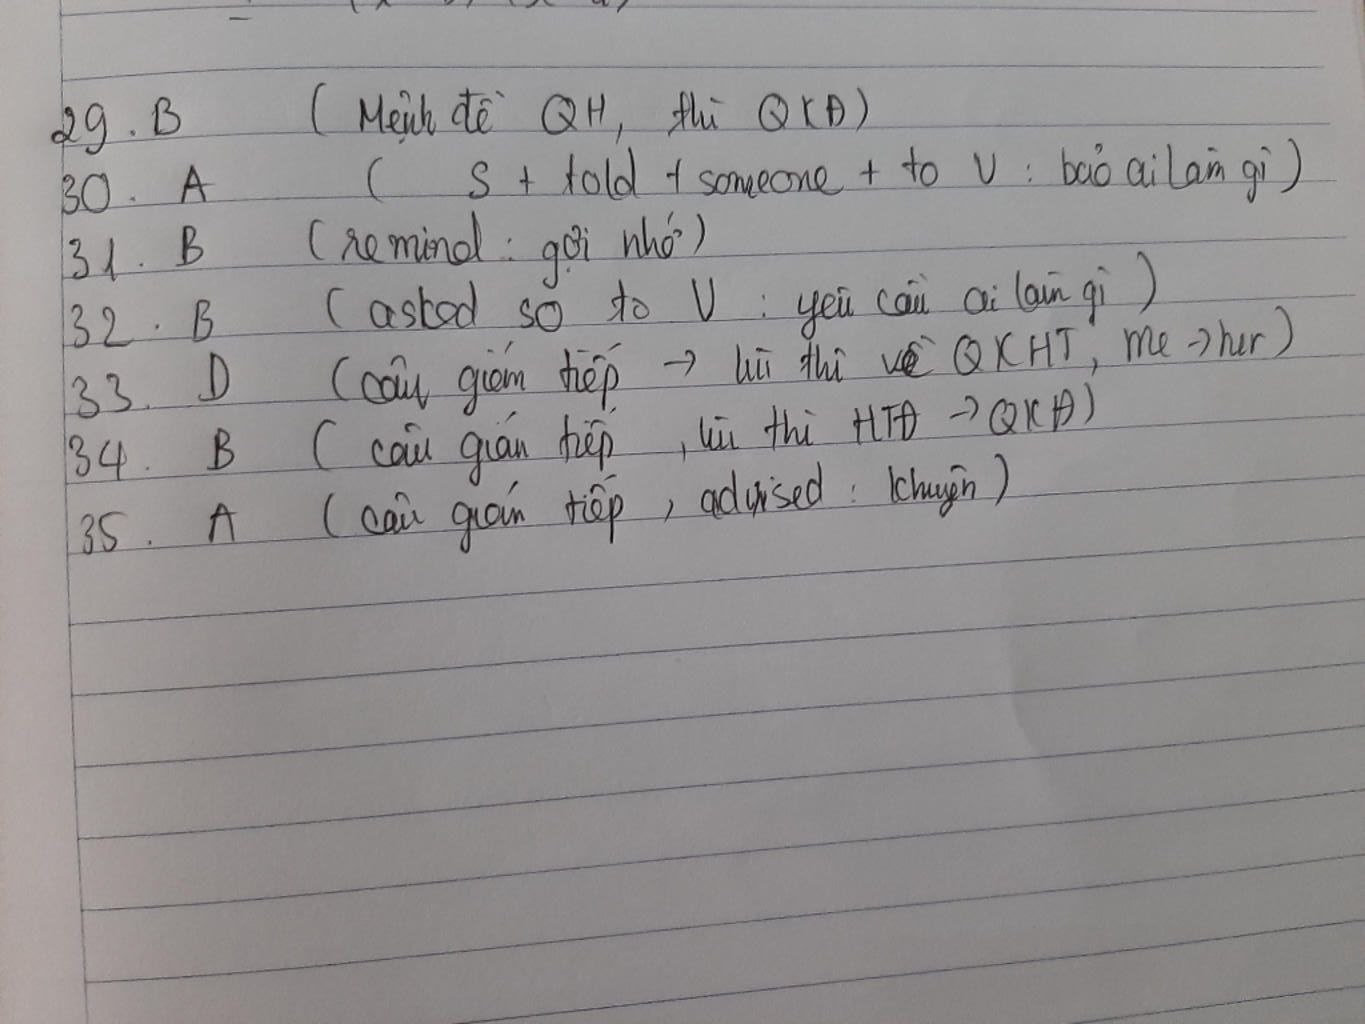 29. B ( Mệnh đề QH, thì QKĐ)
30. A ( S + told + someone + to V : bảo ai làm gì )
31. B (remind : gợi nhớ)
32. B (asked so to V : yêu cầu ai làm gì )
33. D (câu gián tiếp → lùi thì về QKHT, me → her )
34. B ( câu gián tiếp , lùi thì HTĐ → QKĐ)
35. A ( câu gián tiếp , advised : khuyên )